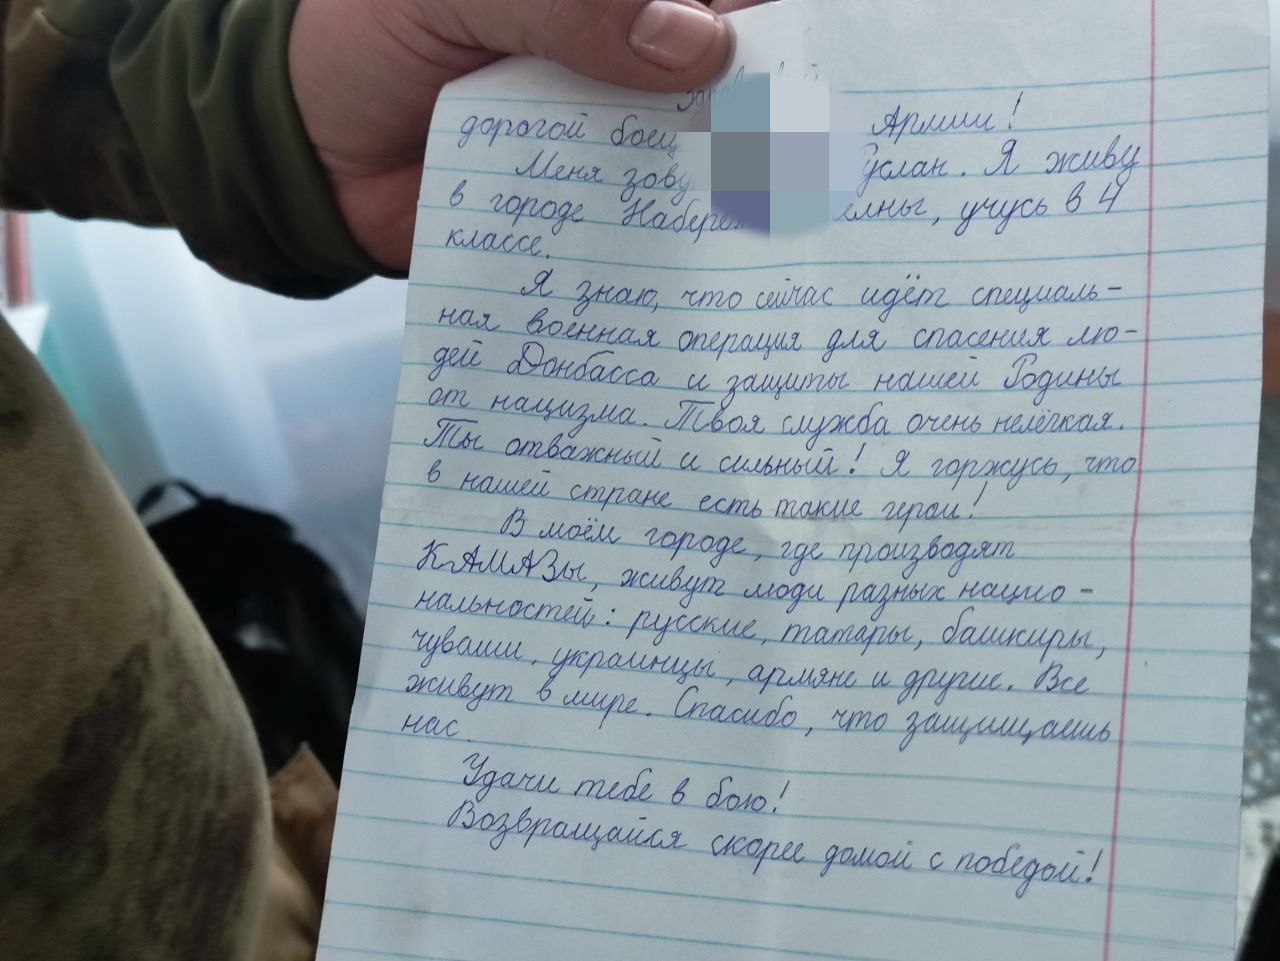 дорогой боец Армии!
Меня зову Руслан. Я живу
в городе елны, учусь в 4
классе.
Я знаю, что сейчас идёт специаль-
ная военная операция для спасения лю-
дей Донбасса и защиты нашей Родины
от нацизма. Твоя служба очень нелёгкая.
Ты отважный и сильный! Я горжусь, что
в нашей стране есть такие герои!
В моём городе, где производят
КАМАЗы, живут люди разных нацио-
нальностей: русские, татары, башкиры,
чуваши, украинцы, армяне и другие. Все
живут в мире. Спасибо, что защищаешь
нас.
Удачи тебе в бою!
Возвращайся скорее домой с победой!